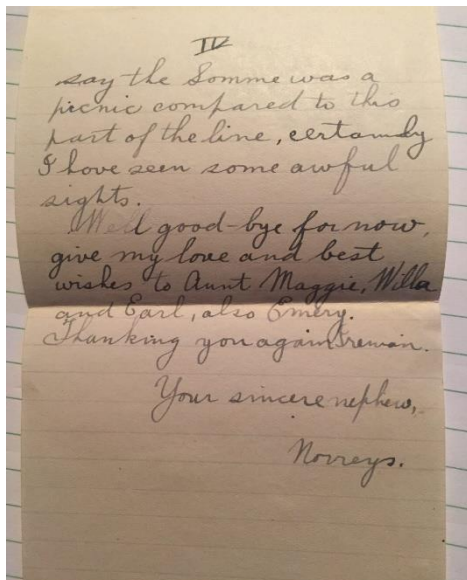 IV
say the Somme was a
picnic compared to this
part of the line, certainly
I have seen some awful
sights.
Well good-bye for now,
give my love and best
wishes to Aunt Maggie, Willa
and Earl, also Emery.
Thanking you again I remain.
Your sincere nephew,
Norreys.